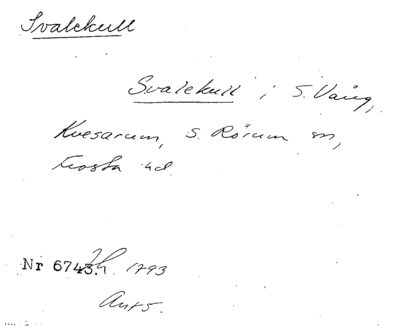 Svalekull
Svalekull i S. Vång,
Kvesarum, S. Rörum sn,
Frosta hd.
Nr 6743. 1793
Ant 5.